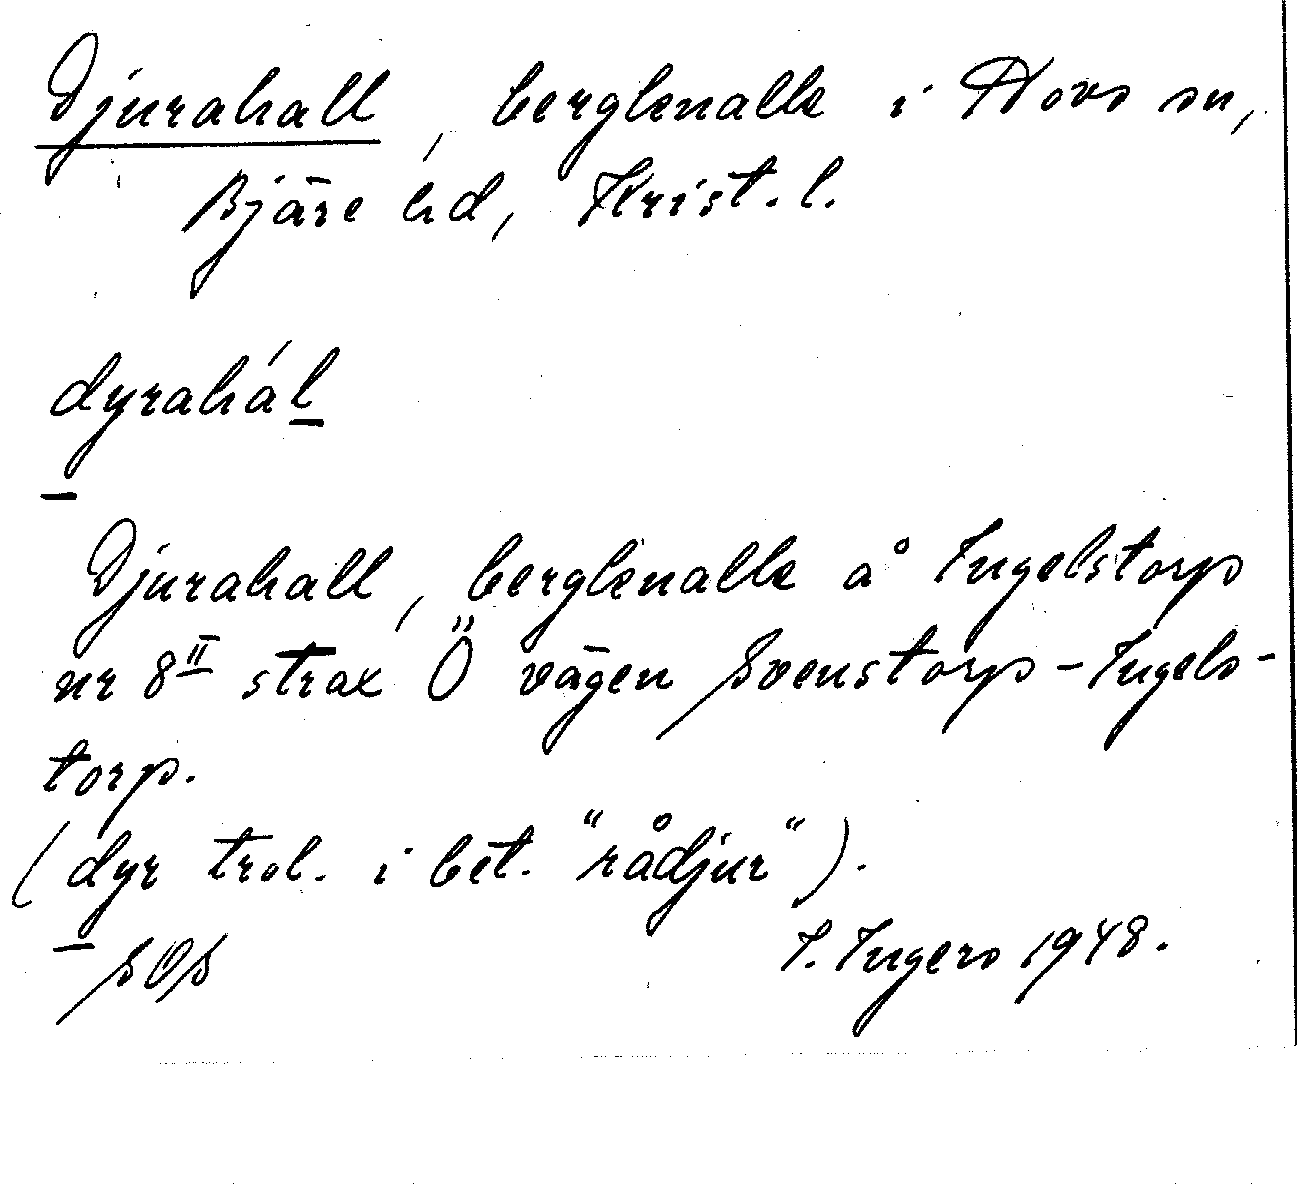 Djurahall, bergknalle i Hovs sn,
Bjäre hd, Krist. l.
dyrahál
Djurahall, bergknalle å Ingelstorp
nr 8 II strax Ö vägen Svenstorp - Ingels-
torp.
(dyr trol. i bet. "rådjur").
I. Ingers 1948.